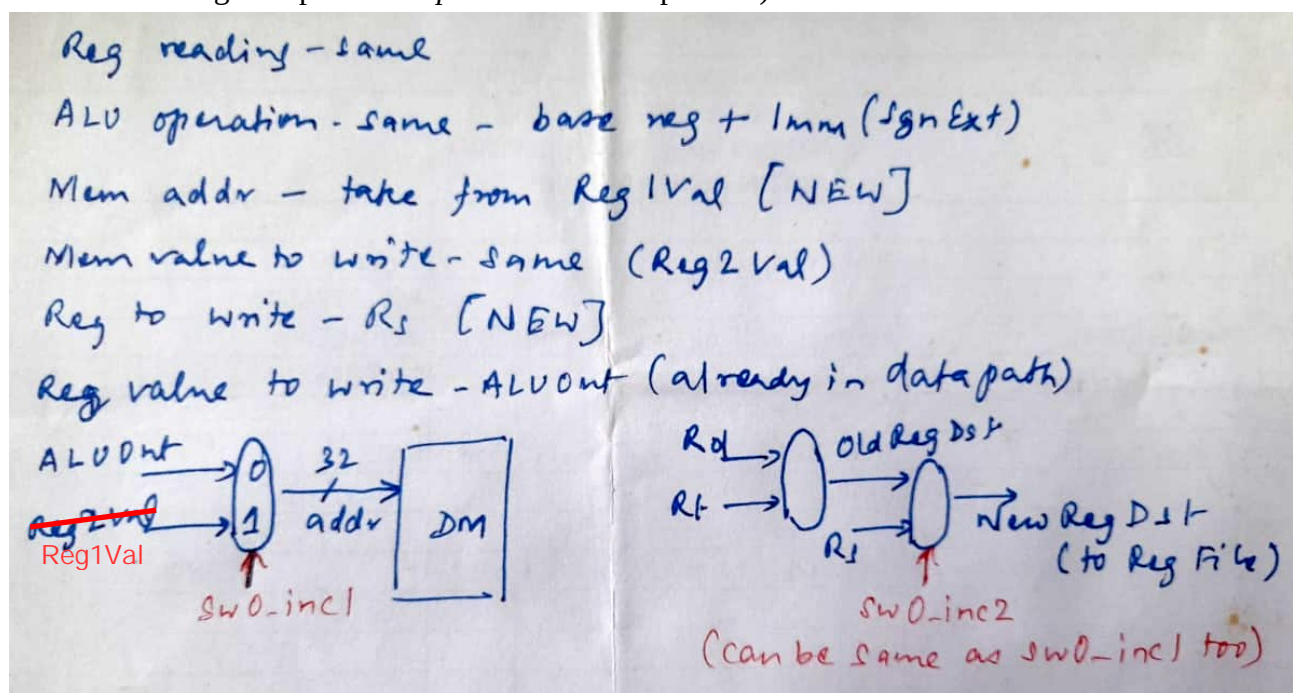 Reg reading - same
ALU operation - same - base reg + Imm (Sgn Ext)
Mem addr - take from Reg1Val [NEW]
Mem value to write - same (Reg2Val)
Reg to write - Rs [NEW]
Reg value to write - ALUOut (already in datapath)
ALUOut 0 32 addr DM
Reg2Val 1
Reg1Val
sw0_inc1
Rd Old Reg Dst
Rt Rs New Reg Dst
(to Reg File)
sw0_inc2
(can be same as sw0_inc1 too)